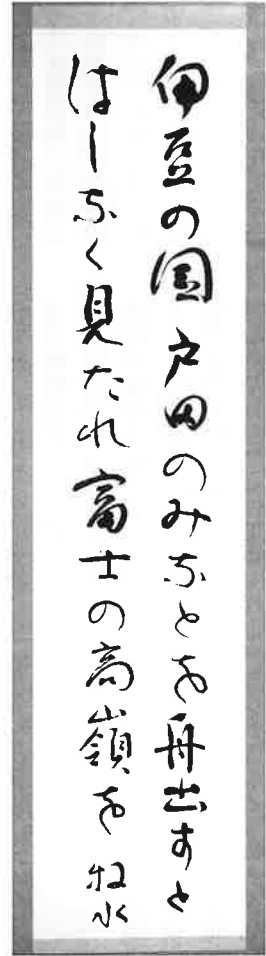 伊豆の国戸田のみなとを舟出すと
はしなく見たれ富士の高嶺を 牧水